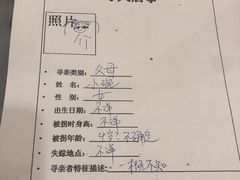 寻人启事
照片
· 寻亲类别: 父母
· 姓 名: 小
· 性 别: 女
· 出生日期: 不详
· 被拐时身高: 不详
· 被拐年龄: 4岁? 不确定
· 失踪地点: 不详
· 寻亲者特征描述: 一概不知